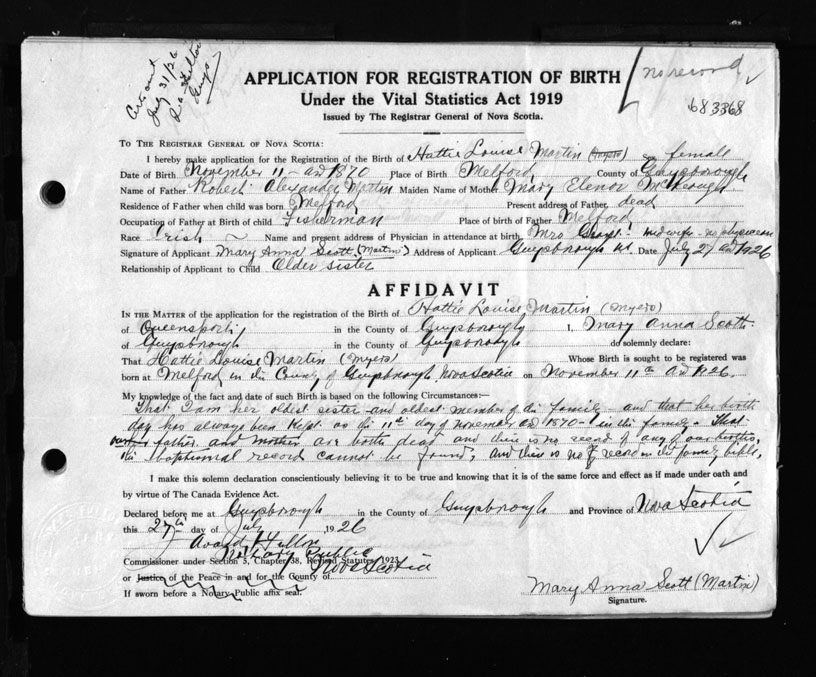 July 31/26
no record
683368
APPLICATION FOR REGISTRATION OF BIRTH
Under the Vital Statistics Act 1919
Issued by The Registrar General of Nova Scotia.
TO THE REGISTRAR GENERAL OF NOVA SCOTIA:
I hereby make application for the Registration of the Birth of Hattie Louise Martin (Myers) Sex female
Date of Birth November 11 - AD 1870 Place of Birth Melford, County of Guysborough
Name of Father Robert Alexander Martin Maiden Name of Mother Mary Elenor McKeough
Residence of Father when child was born Melford Present address of Father, dead
Occupation of Father at Birth of child Fisherman Place of Birth of Father Melford
Race Irish ~ Name and present address of Physician in attendance at birth Mrs midwife - no physician
Signature of Applicant Mary Anna Scott (Martin) Address of Applicant Guysborough Date July 27 AD 1926
Relationship of Applicant to Child Older sister
AFFIDAVIT
IN THE MATTER of the application for registration of the Birth of Hattie Louise Martin (Myers)
of Queensport in the County of Guysborough I, Mary Anna Scott
of Guysborough in the County of Guysborough do solemnly declare:
That Hattie Louise Martin (Myers) Whose Birth is sought to be registered was
born at Melford in the County of Guysborough Nova Scotia on November 11th AD 1926.
My knowledge of the fact and date of such Birth is based on the following Circumstances:—
That I am her oldest sister and oldest member of the family - and that her birth
day has always been kept as the 11th day of November AD 1870 - in the family - That
father and mother are both dead and there is no record of any of our births,
the baptismal record cannot be found, and there is no record in the family bible,
I make this solemn declaration conscientiously believing it to be true and knowing that it is of the same force and effect as if made under oath and
by virtue of The Canada Evidence Act.
Declared before me at Guysborough in the County of Guysborough and Province of Nova Scotia
this 27th day of July 1926
Notary Public
Commissioner under Section 5, Chapter 38, Revised Statutes, 1923 Nova Scotia
or Justice of the Peace in and for the County of
If sworn before a Notary Public affix seal.
Mary Anna Scott (Martin)
Signature.